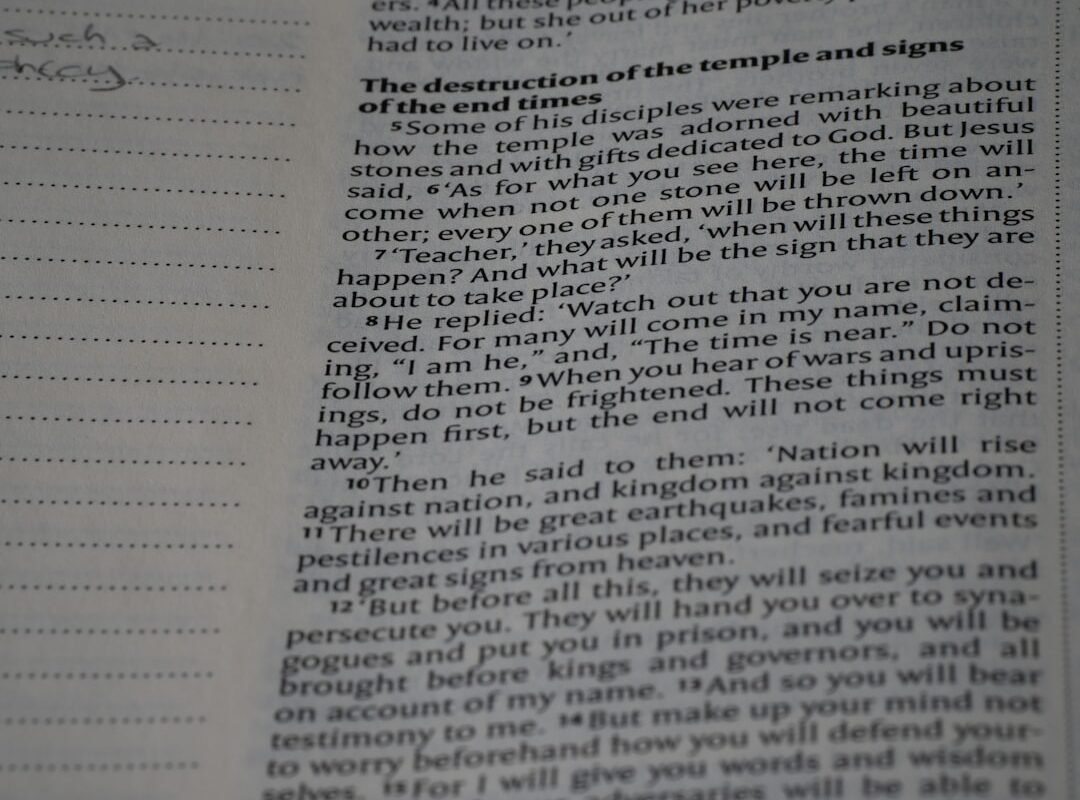 such a
ers. ⁴All these
wealth; but she out of her poverty
had to live on.’
The destruction of the temple and signs
of the end times
⁵Some of his disciples were remarking about
how the temple was adorned with beautiful
stones and with gifts dedicated to God. But Jesus
said, ⁶‘As for what you see here, the time will
come when not one stone will be left on an-
other; every one of them will be thrown down.’
⁷‘Teacher,’ they asked, ‘when will these things
happen? And what will be the sign that they are
about to take place?’
⁸He replied: ‘Watch out that you are not de-
ceived. For many will come in my name, claim-
ing, “I am he,” and, “The time is near.” Do not
follow them. ⁹When you hear of wars and upris-
ings, do not be frightened. These things must
happen first, but the end will not come right
away.’
¹⁰Then he said to them: ‘Nation will rise
against nation, and kingdom against kingdom.
¹¹There will be great earthquakes, famines and
pestilences in various places, and fearful events
and great signs from heaven.
¹²‘But before all this, they will seize you and
persecute you. They will hand you over to syna-
gogues and put you in prison, and you will be
brought before kings and governors, and all
on account of my name. ¹³And so you will bear
testimony to me. ¹⁴But make up your mind not
to worry beforehand how you will defend your-
selves. ¹⁵For I will give you words and wisdom
adversaries will be able to